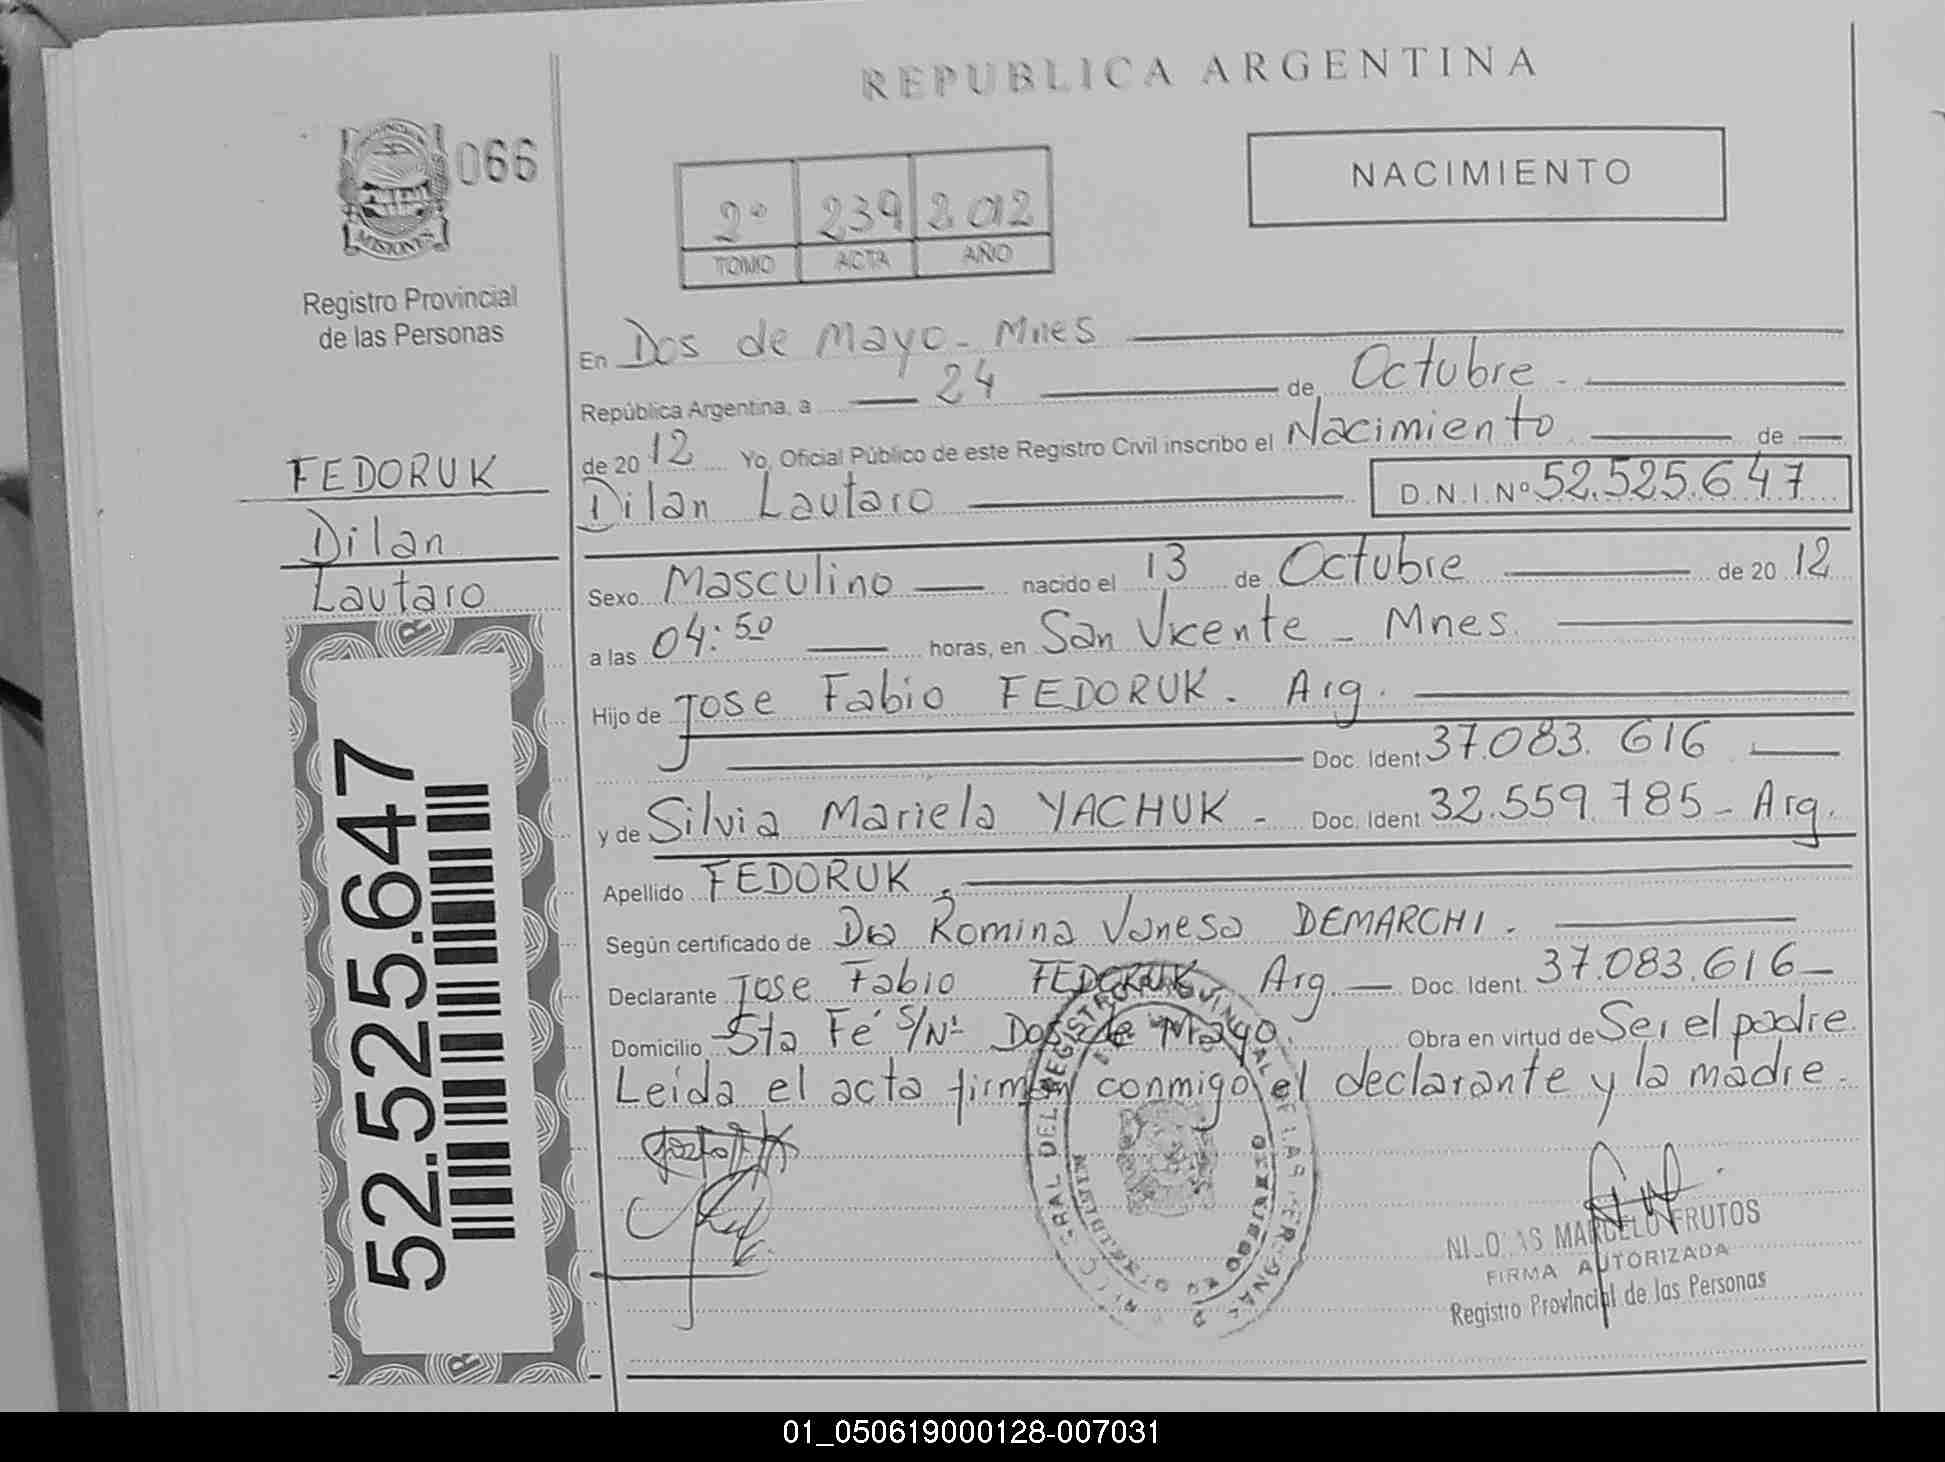 REPUBLICA ARGENTINA
066
MISIONES
Registro Provincial
de las Personas
2º 239 2012
TOMO ACTA AÑO
NACIMIENTO
FEDORUK
Dilan
Lautaro
52.525.647
En Dos de Mayo - Mnes
República Argentina, a 24 de Octubre
de 2012 Yo, Oficial Público de este Registro Civil inscribo el Nacimiento de
Dilan Lautaro D.N.I. Nº 52.525.647
Sexo Masculino nacido el 13 de Octubre de 2012
a las 04:50 horas, en San Vicente - Mnes.
Hijo de Jose Fabio FEDORUK. Arg.
Doc. Ident 37.083.616
y de Silvia Mariela YACHUK - Doc. Ident 32.559.785 - Arg.
Apellido FEDORUK.
Según certificado de Dra Romina Vanesa DEMARCHI.
Declarante Jose Fabio FEDORUK Arg. Doc. Ident. 37.083.616
Domicilio Sta Fé S/Nº Dos de Mayo. Obra en virtud de Ser el padre.
Leída el acta firman conmigo el declarante y la madre.
MARCELO FRUTOS
FIRMA AUTORIZADA
Registro Provincial de las Personas
01_050619000128-007031